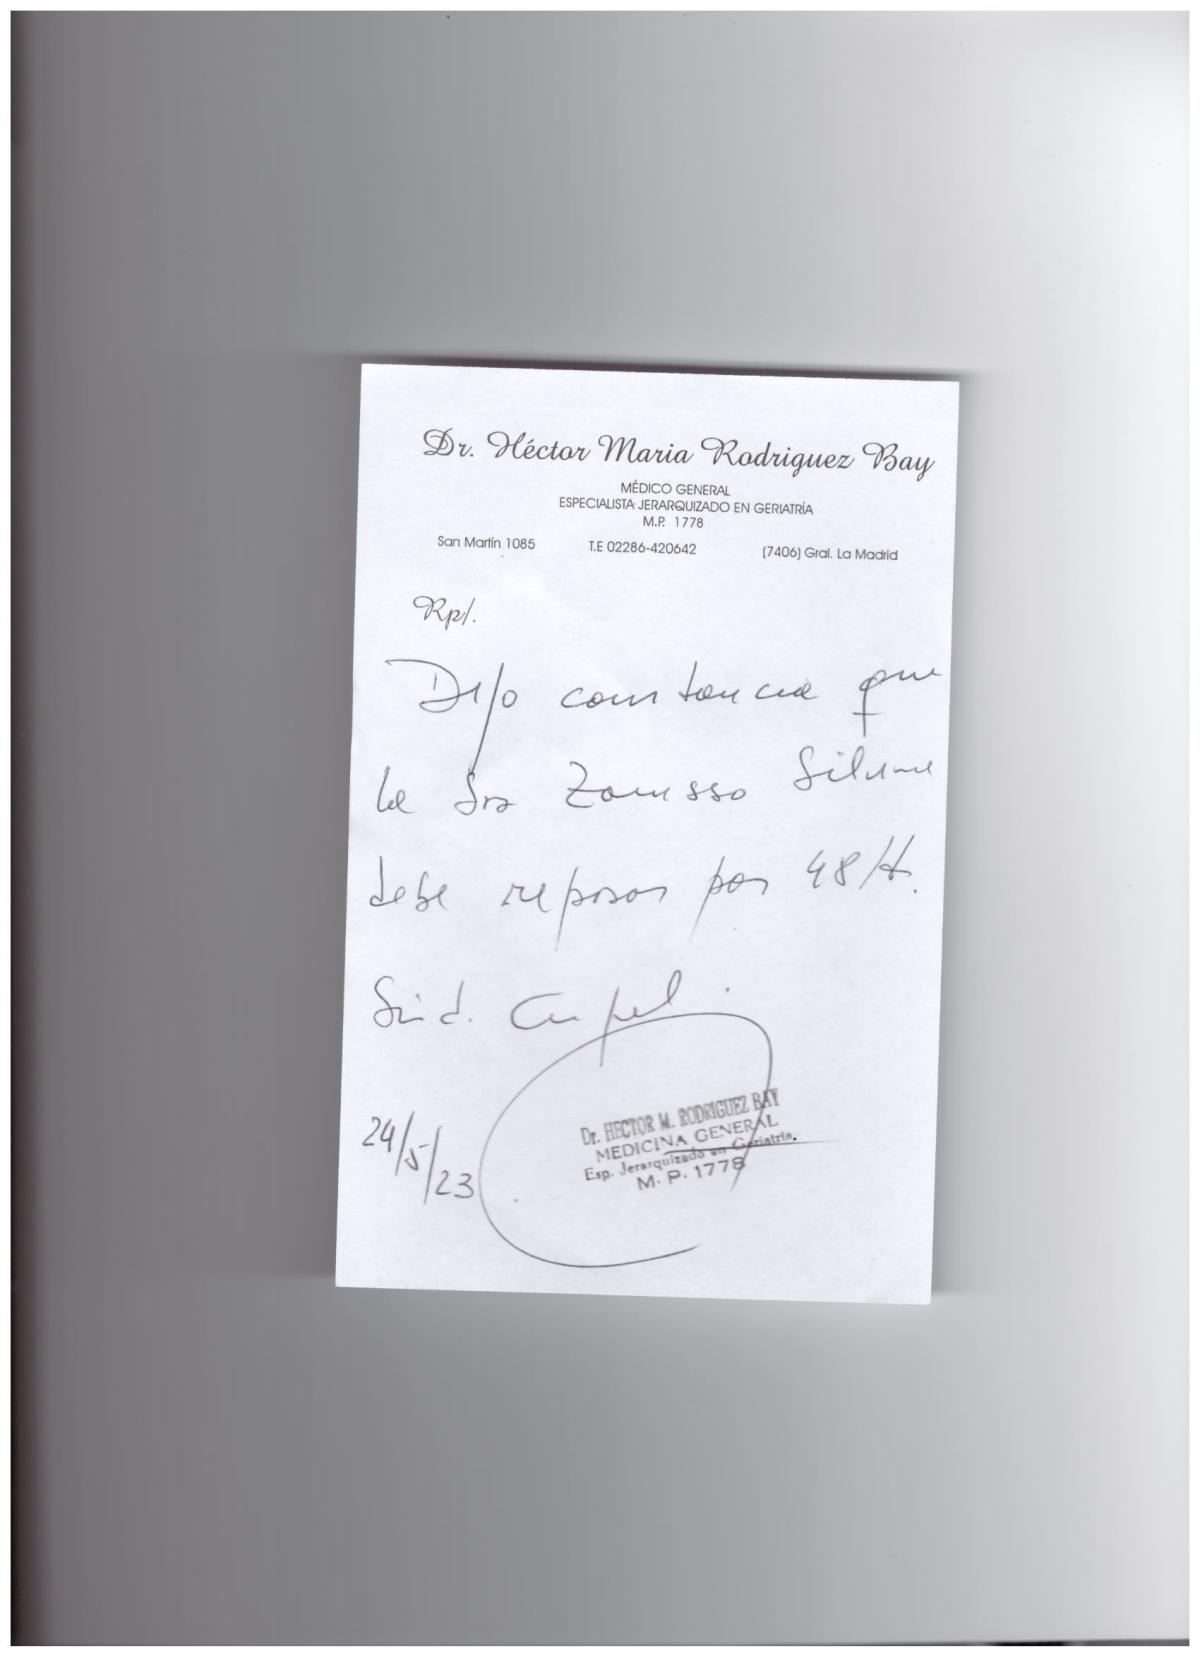 Dr. Héctor Maria Rodriguez Bay
MÉDICO GENERAL
ESPECIALISTA JERARQUIZADO EN GERIATRÍA
M.P. 1778
San Martín 1085 T.E 02286-420642 (7406) Gral. La Madrid
Rp/.
Dejo constancia que
la Sra Zarusso
debe reposar por 48 H.
Sind.
24/5/23
Dr. HECTOR M. RODRIGUEZ BAY
MEDICINA GENERAL
Esp. Jerarquizado en Geriatría.
M. P. 1778